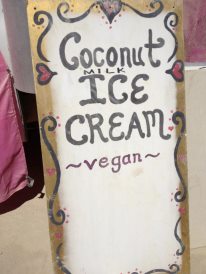 Coconut
MILK
ICE
CREAM
~vegan~